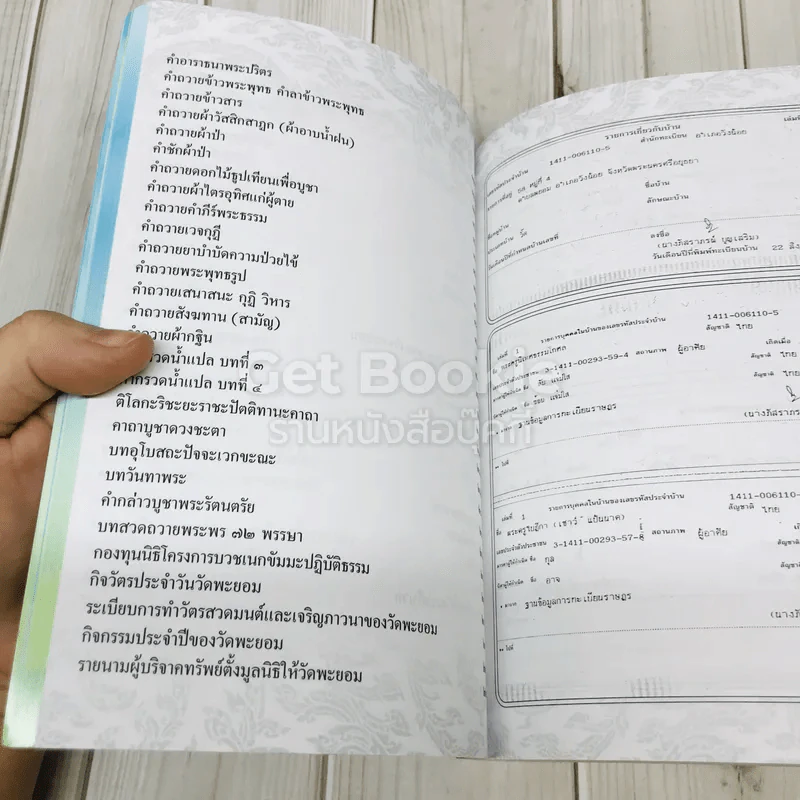 คำอาราธนาพระปริตร
คำถวายข้าวพระพุทธ คำลาข้าวพระพุทธ
คำถวายข้าวสาร
คำถวายผ้าวัสสิกสาฎก (ผ้าอาบน้ำฝน)
คำถวายผ้าป่า
คำชักผ้าป่า
คำถวายดอกไม้ธูปเทียนเพื่อบูชา
คำถวายผ้าไตรอุทิศแก่ผู้ตาย
คำถวายคำภีร์พระธรรม
คำถวายเวจกุฎี
คำถวายยาบำบัดความป่วยไข้
คำถวายพระพุทธรูป
คำถวายเสนาสนะ กุฎิ วิหาร
คำถวายสังฆทาน (สามัญ)
วายผ้ากฐิน
รวดน้ำแปล บทที่ ๓
กรวดน้ำแปล บทที่ ๔
ติโลกะวิชะยะราชะปัตติทานะคาถา
คาถาบูชาดวงชะตา
บทอุโบสถะปัจจะเวกขะณะ
บทวันทาพระ
คำกล่าวบูชาพระรัตนตรัย
บทสวดถวายพระพร ๗๒ พรรษา
กองทุนนิธิโครงการบวชเนกขัมมะปฏิบัติธรรม
กิจวัตรประจำวันวัดพะยอม
ระเบียบการทำวัตรสวดมนต์และเจริญภาวนาของวัดพะยอม
กิจกรรมประจำปีของวัดพะยอม
รายนามผู้บริจาคทรัพย์ตั้งมูลนิธิให้วัดพะยอม
รายการเกี่ยวกับบ้าน
1411-006110-5 สำนักทะเบียน อำเภอวังน้อย
58 หมู่ที่ 4
ตำบลพยอม อำเภอวังน้อย จังหวัดพระนครศรีอยุธยา
ชื่อบ้าน
วัด ลักษณะบ้าน
ลงชื่อ
(นางภัสราภรณ์ บุญเสริม)
วันเดือนปีที่พิมพ์ทะเบียนบ้าน 22
เล่มที่ 1 รายการบุคคลในบ้านของเลขรหัสประจำบ้าน 1411-006110-5
สัญชาติ ไทย
1411-00293-59-4 สถานภาพ ผู้อาศัย
สัญชาติ ไทย
สัญชาติ ไทย
ฐานข้อมูลการทะเบียนราษฎร
เล่มที่ 1 รายการบุคคลในบ้านของเลขรหัสประจำบ้าน 1411-006110-
สัญชาติ ไทย
3-1411-00293-57-8 สถานภาพ ผู้อาศัย
กุล
อาจ
ฐานข้อมูลการทะเบียนราษฎร
Get Bookie
ร้านหนังสือบุ๊คที่